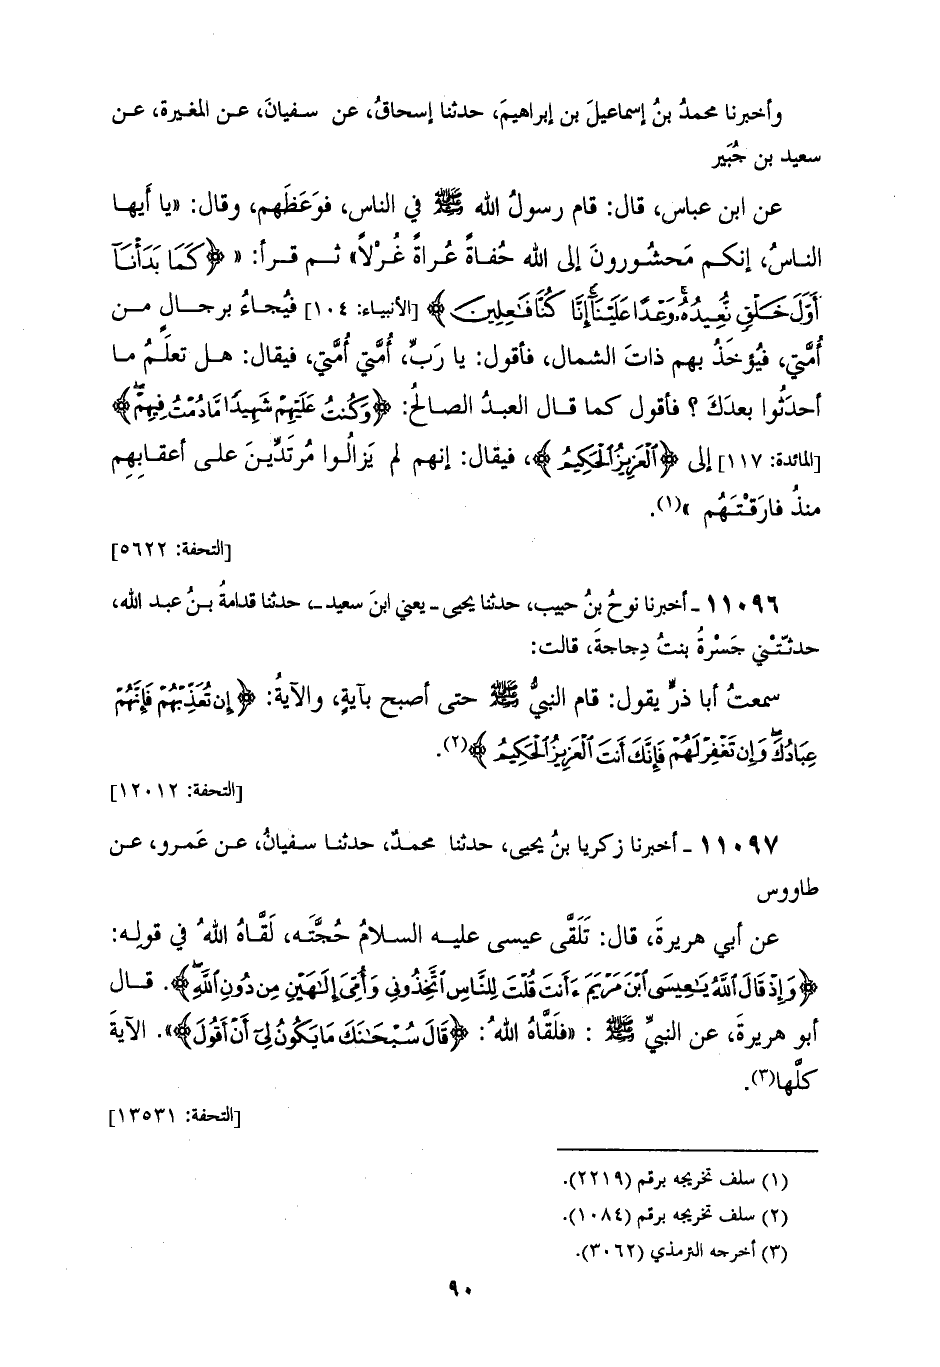 وأخبرنا محمدُ بنُ إسماعيلَ بن إبراهيمَ، حدثنا إسحاقُ، عن سفيانَ، عن المغيرة، عن
سعيد بن جُبَير
عن ابن عباس، قال: قام رسولُ الله ﷺ في الناس، فوَعَظَهم، وقال: «يا أيها
الناسُ، إنكم مَحشُورونَ إلى الله حُفاةً عُراةً غُرْلاً» ثم قرأ: « ﴿كَمَا بَدَأْنَآ
أَوَّلَ خَلْقٍ نُّعِيدُهُۥ وَعْدًا عَلَيْنَآ إِنَّا كُنَّا فَٰعِلِينَ﴾ [الأنبياء: ١٠٤] فيُجاءُ برجالٍ من
أُمَّتي، فيُؤخَذُ بهم ذاتَ الشمال، فأقول: يا رَبِّ، أُمَّتي أُمَّتي، فيقال: هل تعلَمُ ما
أحدَثُوا بعدَكَ ؟ فأقول كما قال العبدُ الصالحُ: ﴿وَكُنتُ عَلَيْهِمْ شَهِيدًا مَّا دُمْتُ فِيهِمْ﴾
[المائدة: ١١٧] إلى ﴿ٱلْعَزِيزُ ٱلْحَكِيمُ﴾، فيقال: إنهم لم يَزالُوا مُرتَدِّينَ على أعقابِهِم
منذُ فارَقْتَهُم »(١).
[التحفة: ٥٦٢٢]
١١٠٩٦ ـ أخبرنا نوحُ بنُ حبيب، حدثنا يحيى ـ يعني ابنَ سعيد ـ، حدثنا قدامةُ بنُ عبد الله،
حدثَتْني جَسْرةُ بنتُ دِجاجةَ، قالت:
سمعتُ أبا ذرٍّ يقول: قام النبيُّ ﷺ حتى أصبح بآيةٍ، والآيةُ: ﴿إِن تُعَذِّبْهُمْ فَإِنَّهُمْ
عِبَادُكَ وَإِن تَغْفِرْ لَهُمْ فَإِنَّكَ أَنتَ ٱلْعَزِيزُ ٱلْحَكِيمُ﴾(٢).
[التحفة: ١٢٠١٢]
١١٠٩٧ ـ أخبرنا زكريا بنُ يحيى، حدثنا محمدٌ، حدثنا سفيانُ، عن عَمرو، عن
طاووس
عن أبي هريرةَ، قال: تَلَقَّى عيسى عليه السلامُ حُجَّتَه، لَقَّاهُ اللهُ في قولِه:
﴿وَإِذْ قَالَ ٱللَّهُ يَٰعِيسَى ٱبْنَ مَرْيَمَ ءَأَنتَ قُلْتَ لِلنَّاسِ ٱتَّخِذُونِي وَأُمِّيَ إِلَٰهَيْنِ مِن دُونِ ٱللَّهِ﴾. قال
أبو هريرةَ، عن النبيِّ ﷺ : «فلَقَّاهُ اللهُ: ﴿قَالَ سُبْحَٰنَكَ مَا يَكُونُ لِيٓ أَنْ أَقُولَ﴾». الآيةَ
كلَّها(٣).
[التحفة: ١٣٥٣١]
(١) سلف تخريجه برقم (٢٢١٩).
(٢) سلف تخريجه برقم (١٠٨٤).
(٣) أخرجه الترمذي (٣٠٦٢).
٩٠